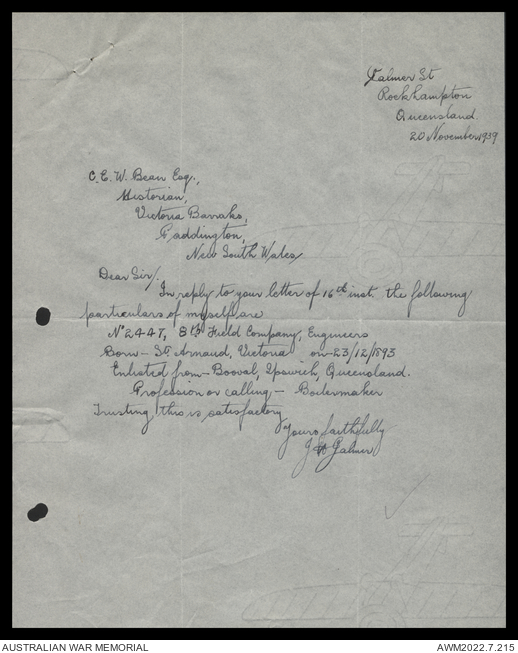 Palmer St
Rockhampton
Queensland.
20 November 1939
C. E. W. Bean Esq.,
Historian,
Victoria Barraks,
Paddington,
New South Wales
Dear Sir/.
In reply to your letter of 16th inst. the following
particulars of myself are
No 2447, 8th Field Company, Engineers
Born - St Arnaud, Victoria on - 23/12/1893
Enlisted from - Booval, Ipswich, Queensland.
Profession or calling - Boilermaker
Trusting this is satisfactory
Yours faithfully
J Palmer
AUSTRALIAN WAR MEMORIAL
AWM2022.7.215